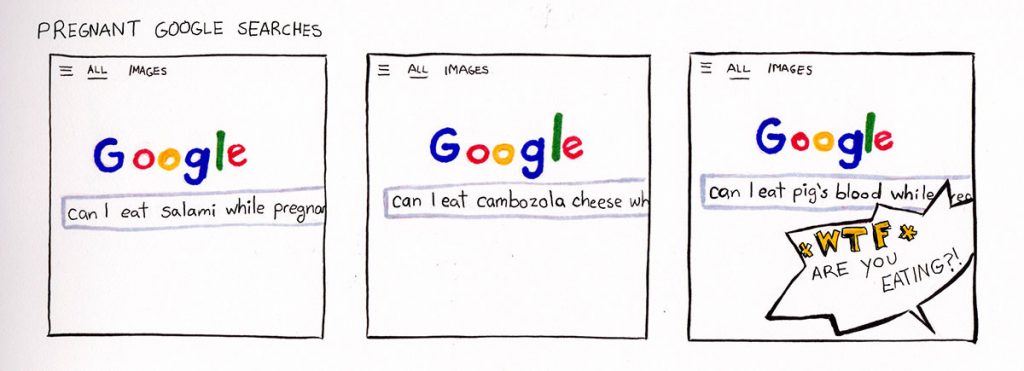 PREGNANT GOOGLE SEARCHES
ALL IMAGES
Google
can I eat salami while pregnan
ALL IMAGES
Google
can I eat cambozola cheese wh
ALL IMAGES
Google
can I eat pig's blood while preg
*WTF*
ARE YOU
EATING?!